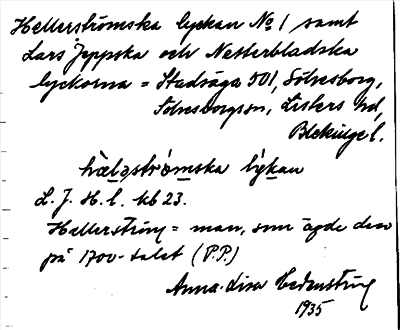 Hellerströmska lyckan No 1 samt
Lars Jeppska och Nesterbladska
lyckorna = Stadsäga 501, Sölvesborg,
Sölvesborgsn, Listers hd,
Blekinge l.
hæləströmska lykan
L. J. H. l. kb 23.
Hellerström = man, som ägde den
på 1700-talet (P.P.)
Anna-Lisa Hedenström
1935